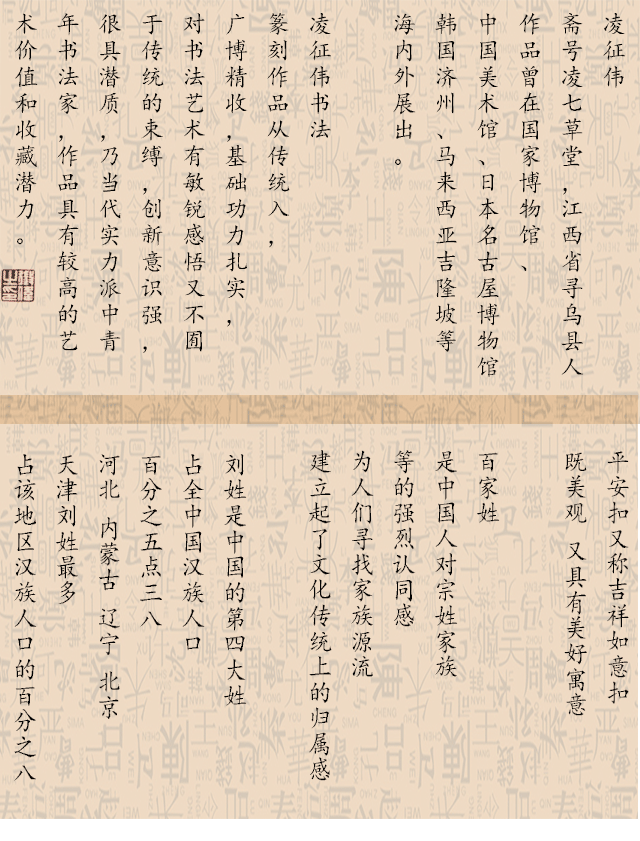 凌征伟
斋号凌七草堂，江西省寻乌县人
作品曾在国家博物馆、
中国美术馆、日本名古屋博物馆
韩国济州、马来西亚吉隆坡等
海内外展出。
凌征伟书法
篆刻作品从传统入，
广博精收，基础功力扎实，
对书法艺术有敏锐感悟又不囿
于传统的束缚，创新意识强，
很具潜质，乃当代实力派中青
年书法家，作品具有较高的艺
术价值和收藏潜力。
平安扣又称吉祥如意扣
既美观 又具有美好寓意
百家姓
是中国人对宗姓家族
等的强烈认同感
为人们寻找家族源流
建立起了文化传统上的归属感
刘姓是中国的第四大姓
占全中国汉族人口
百分之五点三八
河北 内蒙古 辽宁 北京
天津刘姓最多
占该地区汉族人口的百分之八